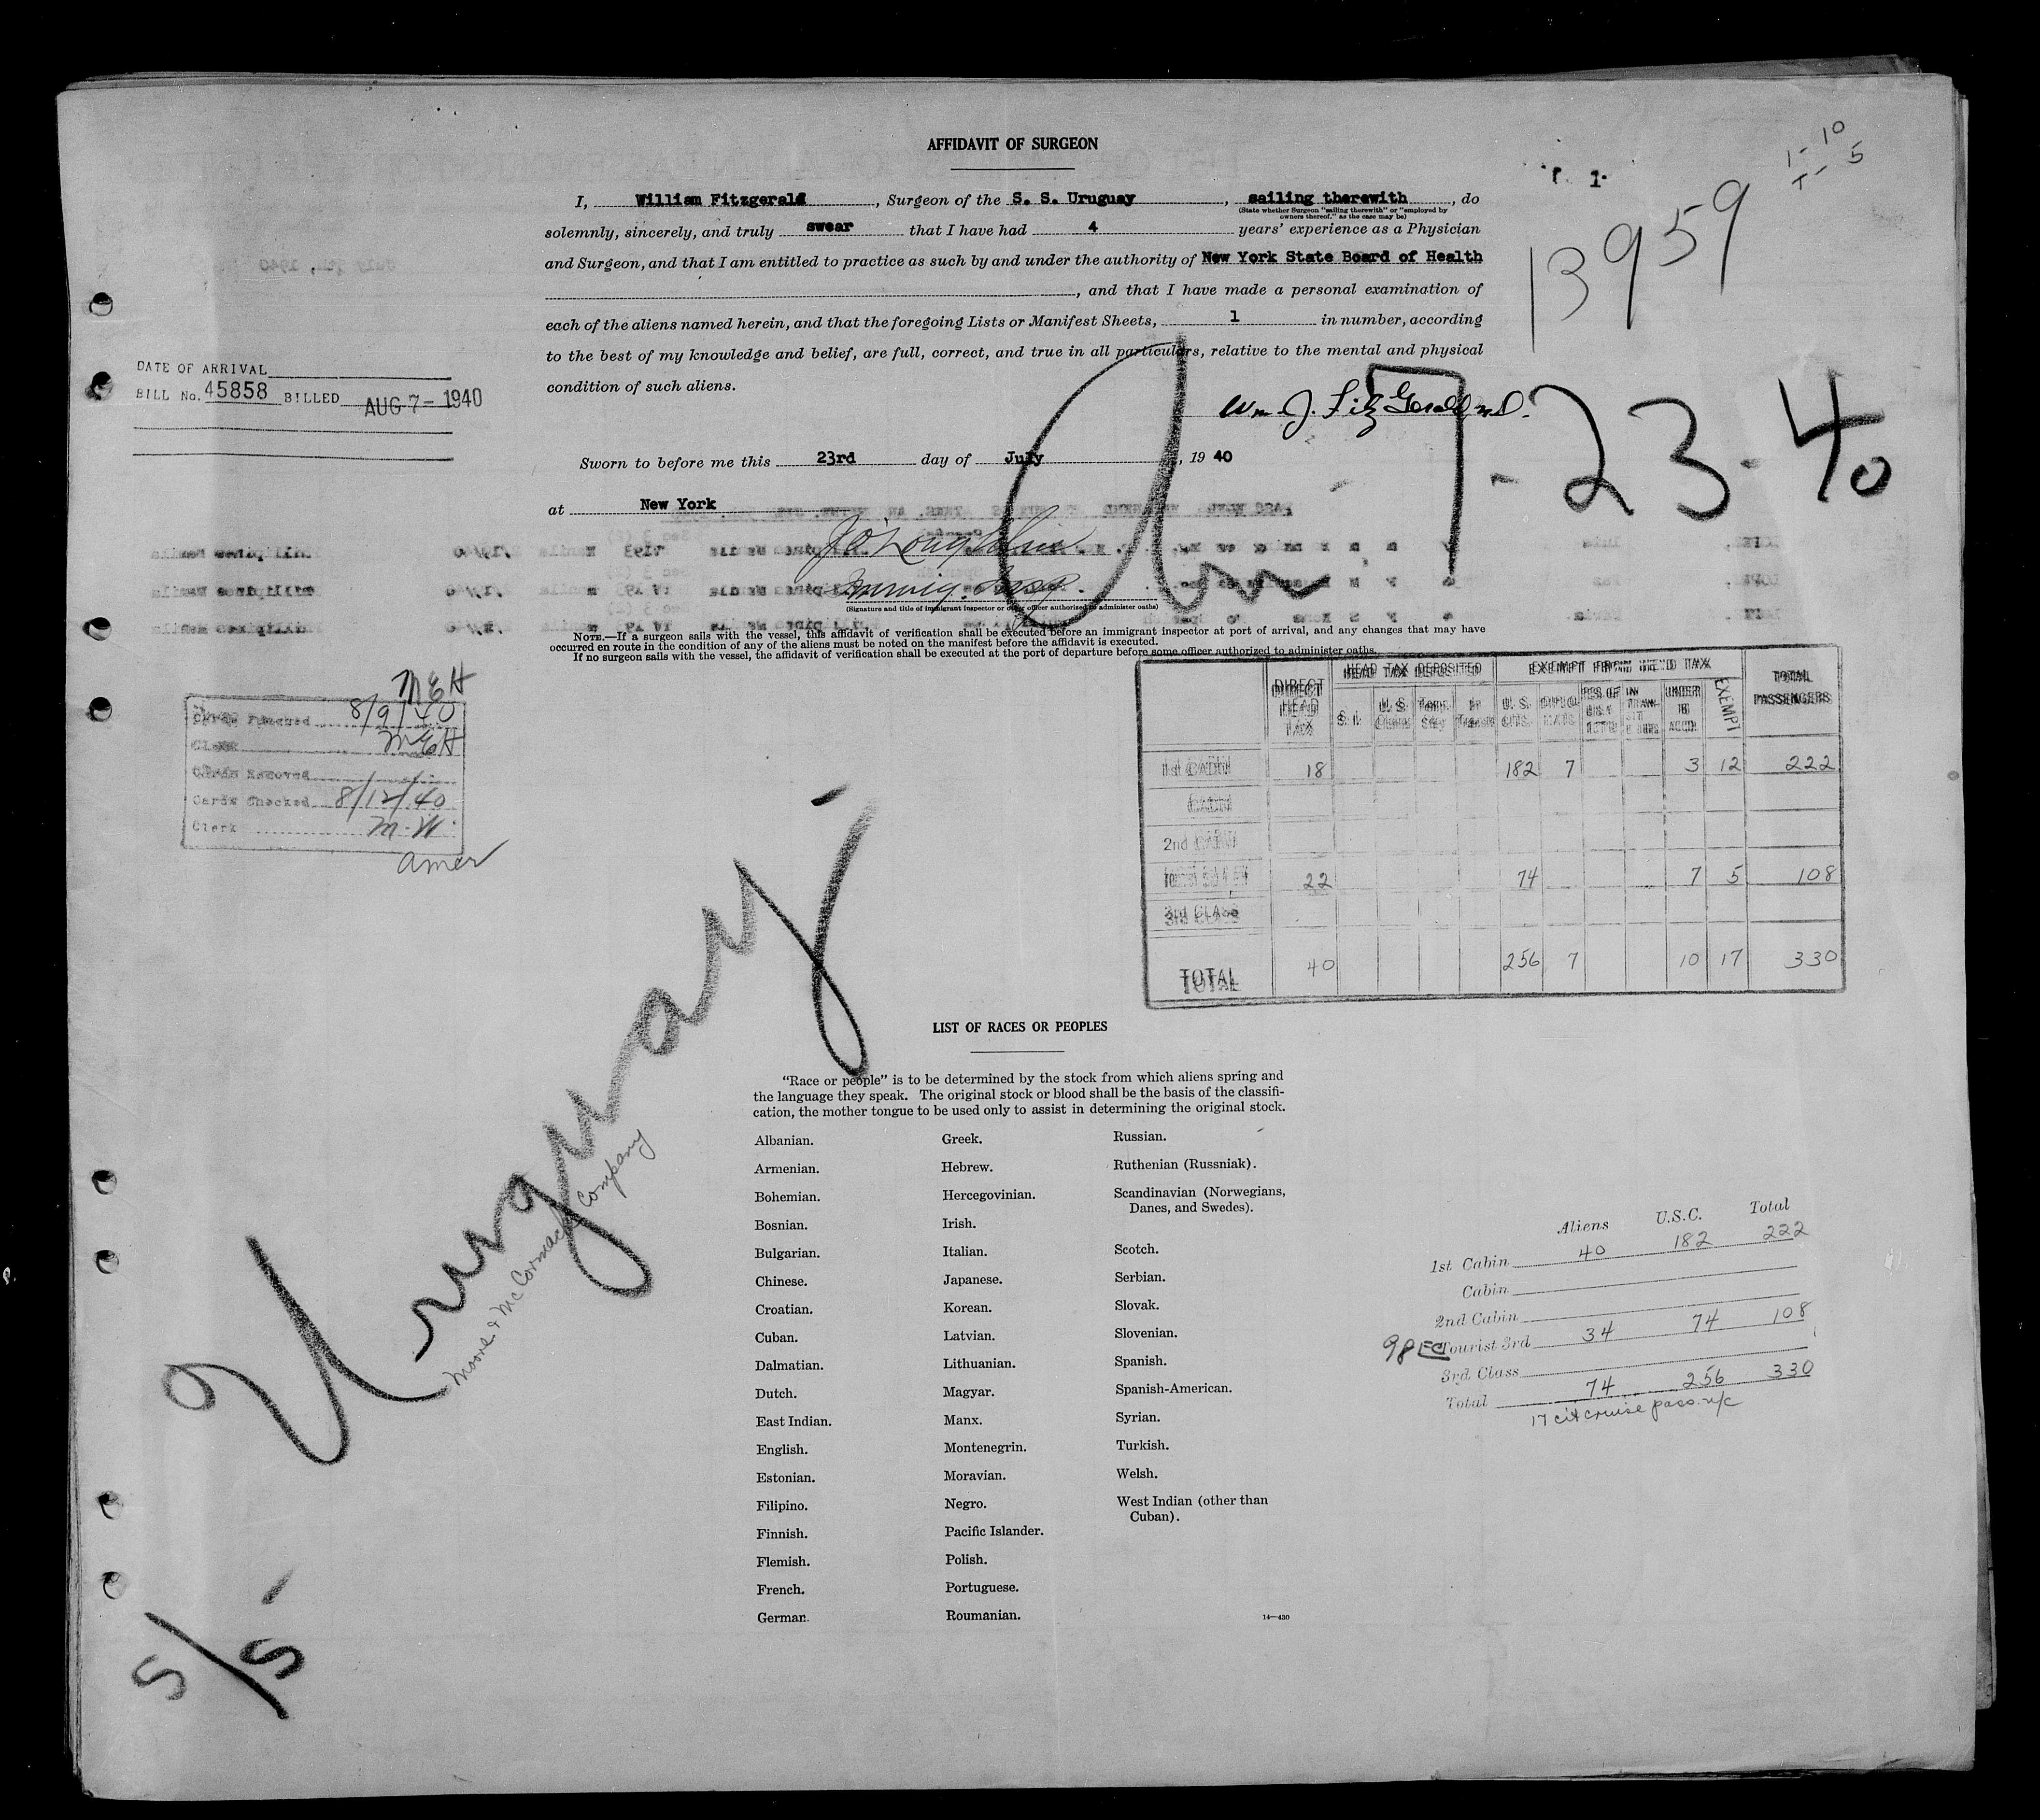 AFFIDAVIT OF SURGEON
1-10
T-5
P. 1
13959
I, William Fitzgerald, Surgeon of the S. S. Uruguay, sailing therewith, do
(State whether Surgeon "sailing therewith" or "employed by
owners thereof," as the case may be)
solemnly, sincerely, and truly swear that I have had 4 years' experience as a Physician
and Surgeon, and that I am entitled to practice as such by and under the authority of New York State Board of Health
, and that I have made a personal examination of
each of the aliens named herein, and that the foregoing Lists or Manifest Sheets, 1 in number, according
to the best of my knowledge and belief, are full, correct, and true in all particulars, relative to the mental and physical
condition of such aliens.
DATE OF ARRIVAL
BILL No. 45858 BILLED AUG 7-1940
Wm. J. FitzGerald, M.D.
7-23-40
Sworn to before me this 23rd day of July, 19 40
at New York
Immig. Insp.
(Signature and title of immigrant inspector or other officer authorized to administer oaths)
NOTE.—If a surgeon sails with the vessel, this affidavit of verification shall be executed before an immigrant inspector at port of arrival, and any changes that may have
occurred en route in the condition of any of the aliens must be noted on the manifest before the affidavit is executed.
If no surgeon sails with the vessel, the affidavit of verification shall be executed at the port of departure before some officer authorized to administer oaths.
MEH
Cards Punched 8/9/40
Clerk MEH
Cards Removed
Cards Checked 8/12/40
Clerk M.W.
amer
DIRECT HEAD TAX
HEAD TAX DEPOSITED
EXEMPT FROM HEAD TAX
TOTAL PASSENGERS
S. I. U. S. Temp. Stay In Transit U. S. CITS. DIPLOMATS UNDER 16 ACCOM. EXEMPT
1st CABIN 18 182 7 3 12 222
CABIN
2nd CABIN
TOURIST 22 74 7 5 108
3rd CLASS
TOTAL 40 256 7 10 17 330
Uruguay
Moore & McCormack Company
S/S
LIST OF RACES OR PEOPLES
"Race or people" is to be determined by the stock from which aliens spring and
the language they speak. The original stock or blood shall be the basis of the classifi-
cation, the mother tongue to be used only to assist in determining the original stock.
Albanian.
Armenian.
Bohemian.
Bosnian.
Bulgarian.
Chinese.
Croatian.
Cuban.
Dalmatian.
Dutch.
East Indian.
English.
Estonian.
Filipino.
Finnish.
Flemish.
French.
German.
Greek.
Hebrew.
Hercegovinian.
Irish.
Italian.
Japanese.
Korean.
Latvian.
Lithuanian.
Magyar.
Manx.
Montenegrin.
Moravian.
Negro.
Pacific Islander.
Polish.
Portuguese.
Roumanian.
Russian.
Ruthenian (Russniak).
Scandinavian (Norwegians,
Danes, and Swedes).
Scotch.
Serbian.
Slovak.
Slovenian.
Spanish.
Spanish-American.
Syrian.
Turkish.
Welsh.
West Indian (other than
Cuban).
14—430
Aliens U.S.C. Total
1st Cabin 40 182 222
Cabin
2nd Cabin
98 EC Tourist 3rd 34 74 108
3rd Class
Total 74 256 330
17 cit cruise pass. n/c